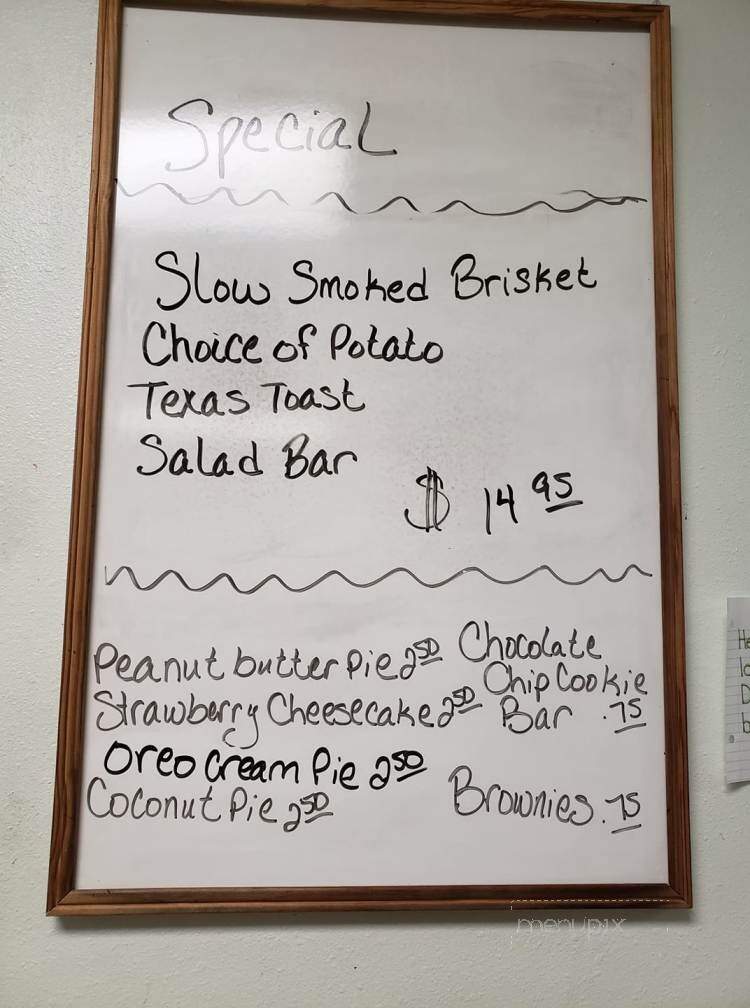 Special
Slow Smoked Brisket
Choice of Potato
Texas Toast
Salad Bar
$ 14 95
Peanut butter Pie 2 50
Strawberry Cheesecake 2 50
Oreo Cream Pie 2 50
Coconut Pie 2 50
Chocolate
Chip Cookie
Bar .75
Brownies .75
menupix